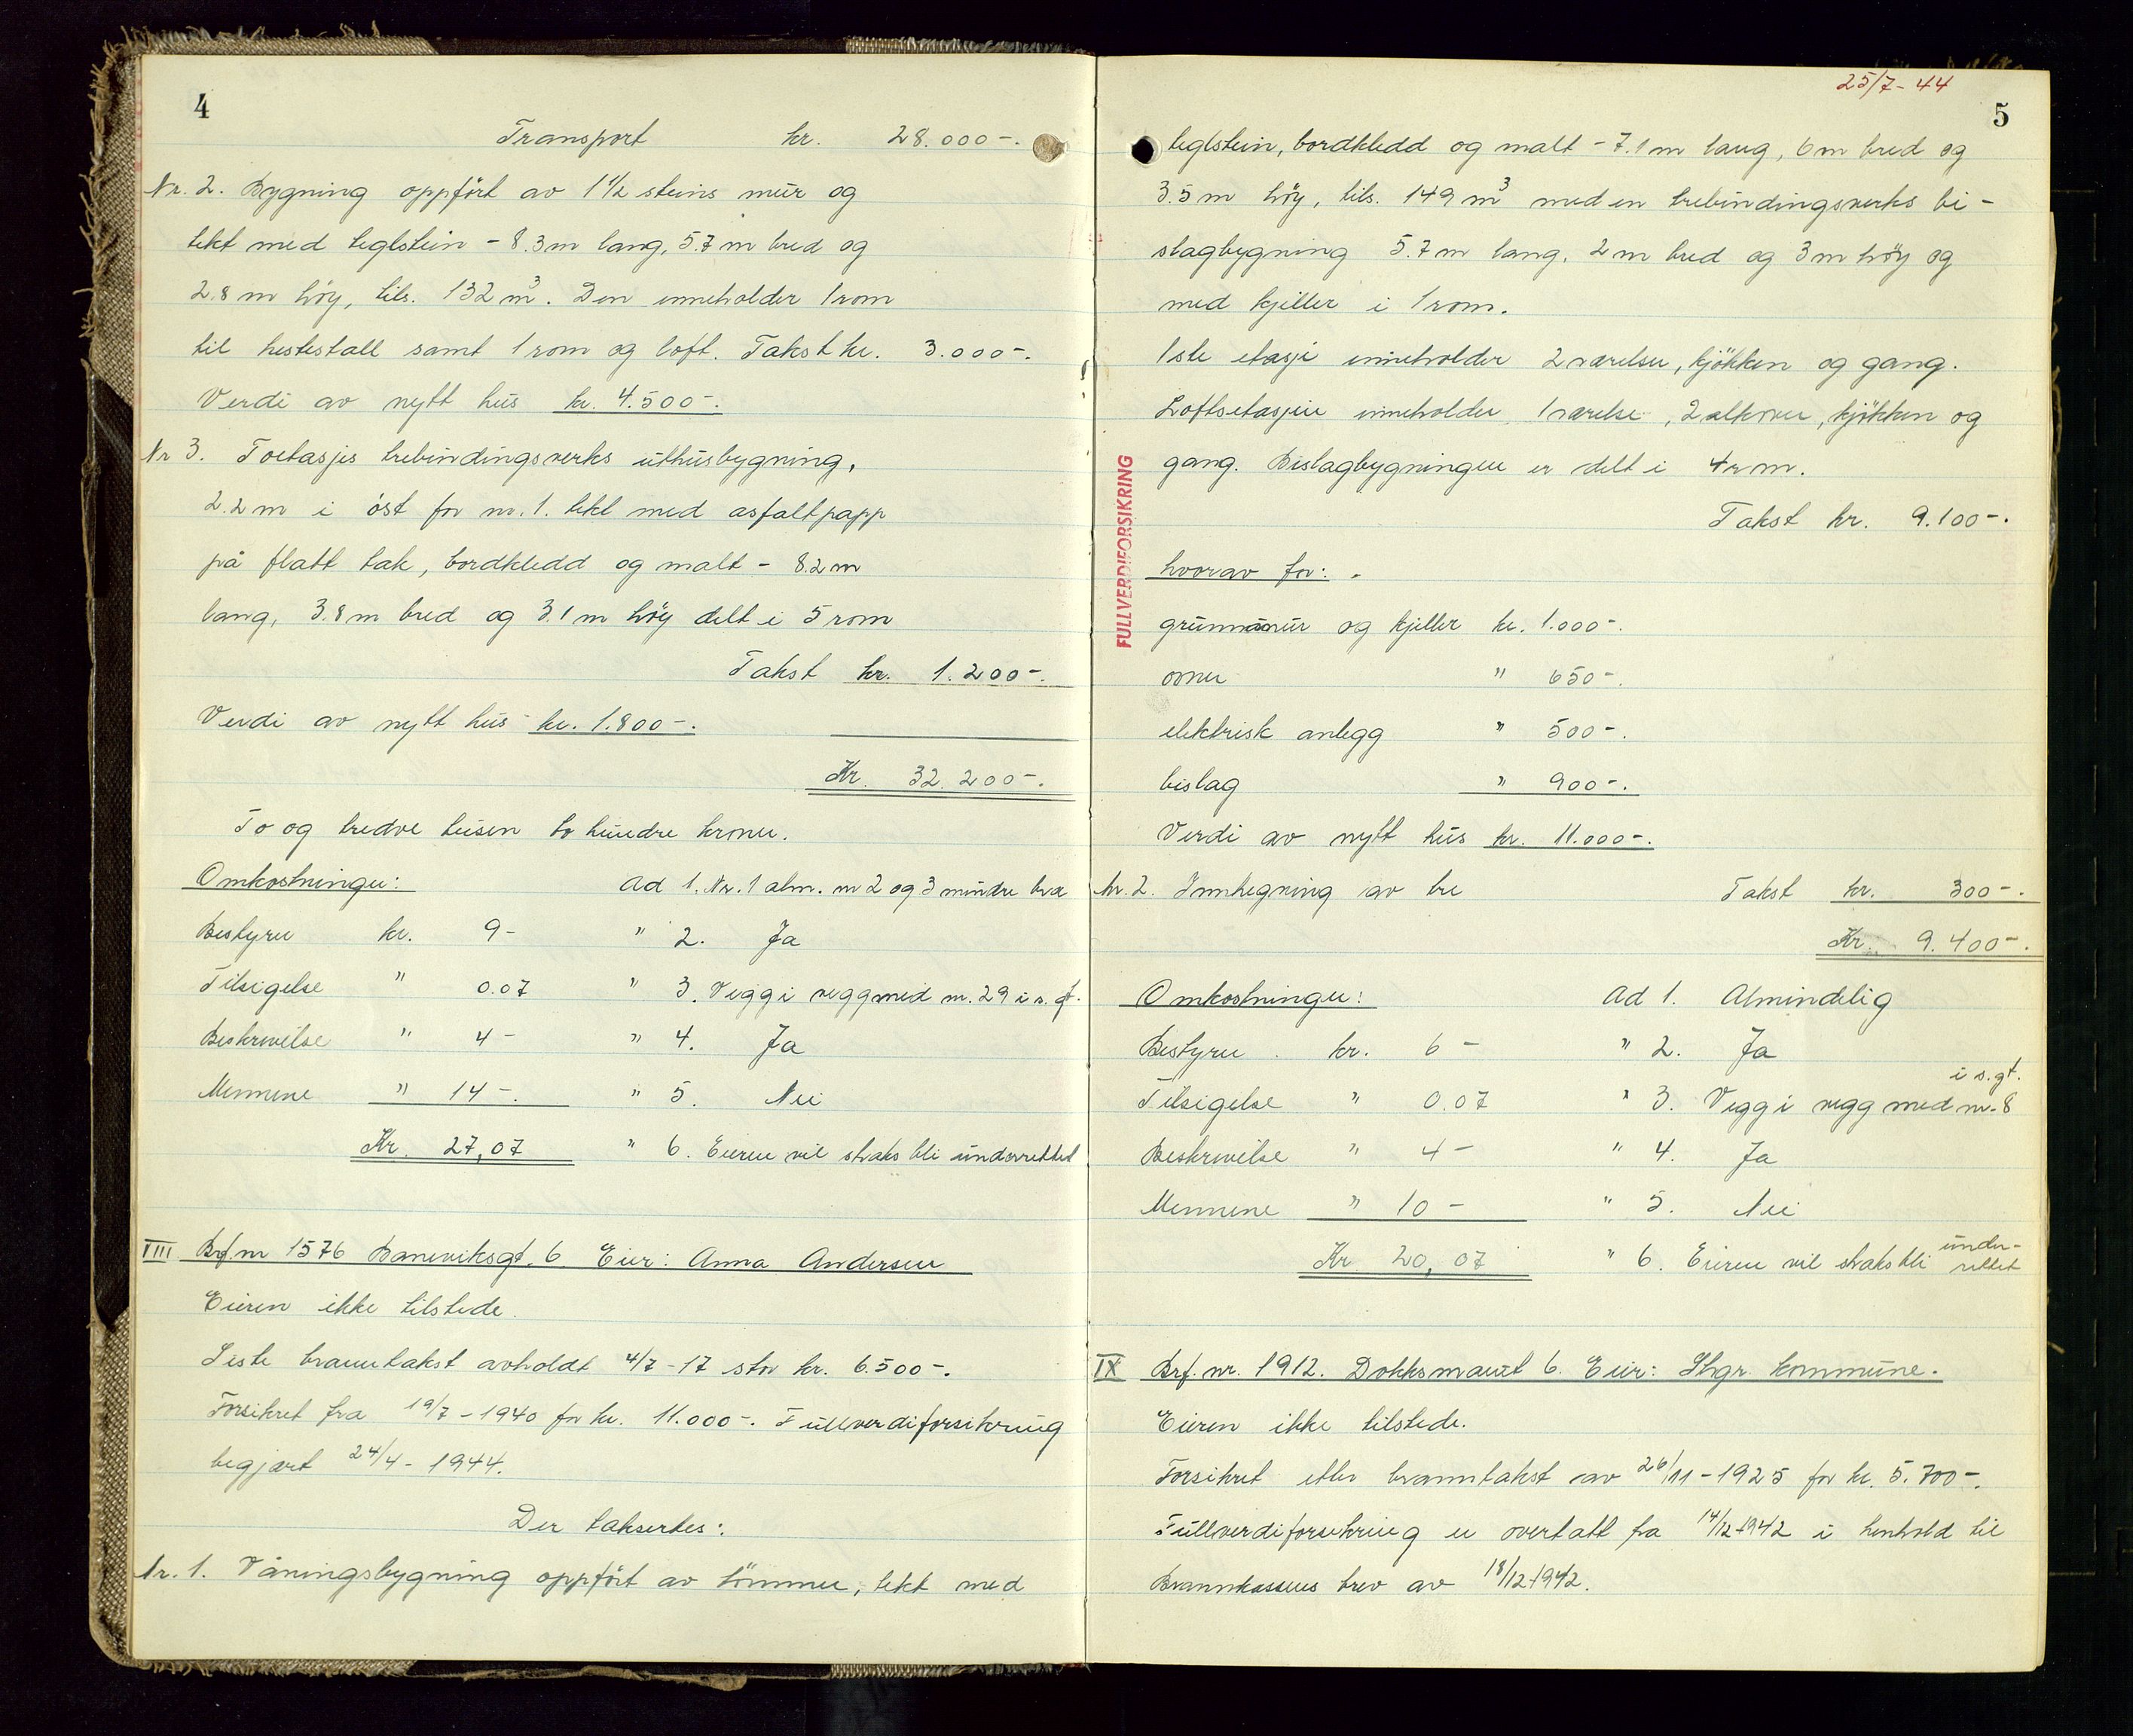 4
Transport kr. 28.000-.
Nr. 2. Bygning oppført av 1 1/2 steins mur og
tekt med teglstein - 8.3 m lang, 5.7 m bred og
2.8 m høy, tils. 132 m³. Den inneholder 1 rom
til hestestall samt 1 rom og loft. Takst kr. 3.000-.
Verdi av nytt hus kr. 4.500-.
Nr 3. Toetasjes trebindingsverks uthusbygning,
2.2 m i øst for nr. 1. tekt med asfaltpapp
på flatt tak, bordkledd og malt - 8.2 m
lang, 3.8 m bred og 3.1 m høy delt i 5 rom
Takst kr. 1.200-.
Verdi av nytt hus kr. 1.800-.
Kr. 32.200-.
To og tredve tusen to hundre kroner.
Omkostninger: Ad 1. Nr. 1 alm. nr 2 og 3 mindre bra
Bestyrer kr. 9- " 2. Ja
Tilsigelse " 0.07 " 3. Vegg i vegg med nr. 29 i s. gt.
Beskrivelse " 4- " 4. Ja
Mennene " 14-. " 5. Nei
Kr. 27,07 " 6. Eieren vil straks bli underrettet
VIII Brf. nr 1576 Baneviksgt. 6. Eier: Anna Andersen
Eieren ikke tilstede.
Siste branntakst avholdt 4/7-17 stor kr. 6.500-.
Forsikret fra 19/7-1940 for kr. 11.000-. Fullverdiforsikring
begjært 24/4-1944.
Der takseres:
Nr. 1. Våningsbygning oppført av tømmer, tekt med
25/7-44
5
teglstein, bordkledd og malt - 7.1 m lang, 6 m bred og
3.5 m høy, tils. 149 m³ med en trebindingsverks bi-
slagbygning 5.7 m lang, 2 m bred og 3 m høy og
med kjeller i 1 rom.
1ste etasje inneholder 2 værelser, kjøkken og gang.
Loftsetasjen inneholder 1 værelse, 2 alkover, kjøkken og
gang. Bislagbygningen er delt i 4 rom.
Takst kr. 9.100-.
FULLVERDIFORSIKRING
hvorav for: -
grunnmur og kjeller kr. 1.000-.
ovner " 650-.
elektrisk anlegg " 500-.
bislag " 900-.
Verdi av nytt hus kr. 11.000-.
Nr. 2. Innhegning av tre Takst kr. 300-.
Kr. 9.400-.
Omkostninger: Ad 1. Almindelig
Bestyrer kr. 6- " 2. Ja
Tilsigelse " 0.07 " 3. Vegg i vegg med nr. 8 i s. gt.
Beskrivelse " 4- " 4. Ja
Mennene " 10- " 5. Nei
Kr 20,07 " 6. Eieren vil straks bli under-
rettet
IX Brf. nr. 1912. Dokksmauet 6. Eier: Stvgr. kommune.
Eieren ikke tilstede.
Forsikret etter branntakst av 26/11-1925 for kr. 5.700-.
Fullverdiforsikring er overtatt fra 14/12-1942 i henhold til
Brannkassens brev av 18/12-1942.